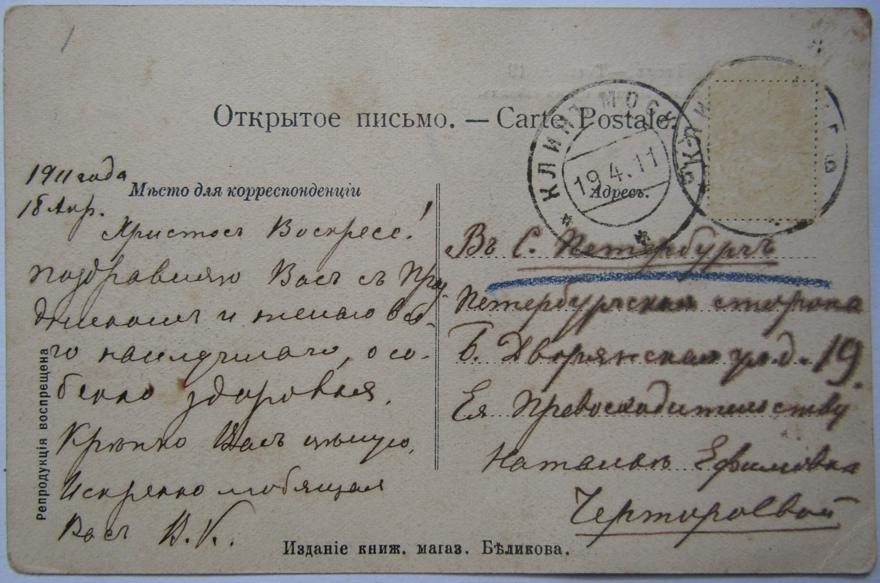 Открытое письмо. — Carte Postale.
КЛИНЪ МОСК
19.4.11
Мѣсто для корреспонденціи
Адресъ.
1911 года
18 Апр.
Христосъ Воскресе!
Поздравляю Васъ съ Пра
здникомъ и желаю все-
го наилучшаго, осо-
бенно здоровья.
Крѣпко Васъ цѣлую,
Искренно любящая
Васъ В. К.
Въ С. Петербургъ
Петербургская сторона
Б. Дворянская ул. д. 19.
Ея Превосходительству
Наталіи Ефимовнѣ
Репродукція воспрещена
Изданіе книж. магаз. Бѣликова.